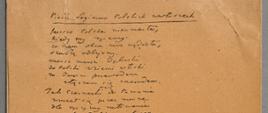 Pieśń Legionów Polskich we Włoszech
Jeszcze Polska nie umarła,
kiedy my żyjemy
co nam obca moc wydarła,
szablą odbijemy
marsz marsz Dąbrowski
do Polski z ziemi włoski
za Twoim przewodem
złączem się z narodem
Jak Czarnecki do Poznania
wracał się przez morze
dla ojczyzny ratowania